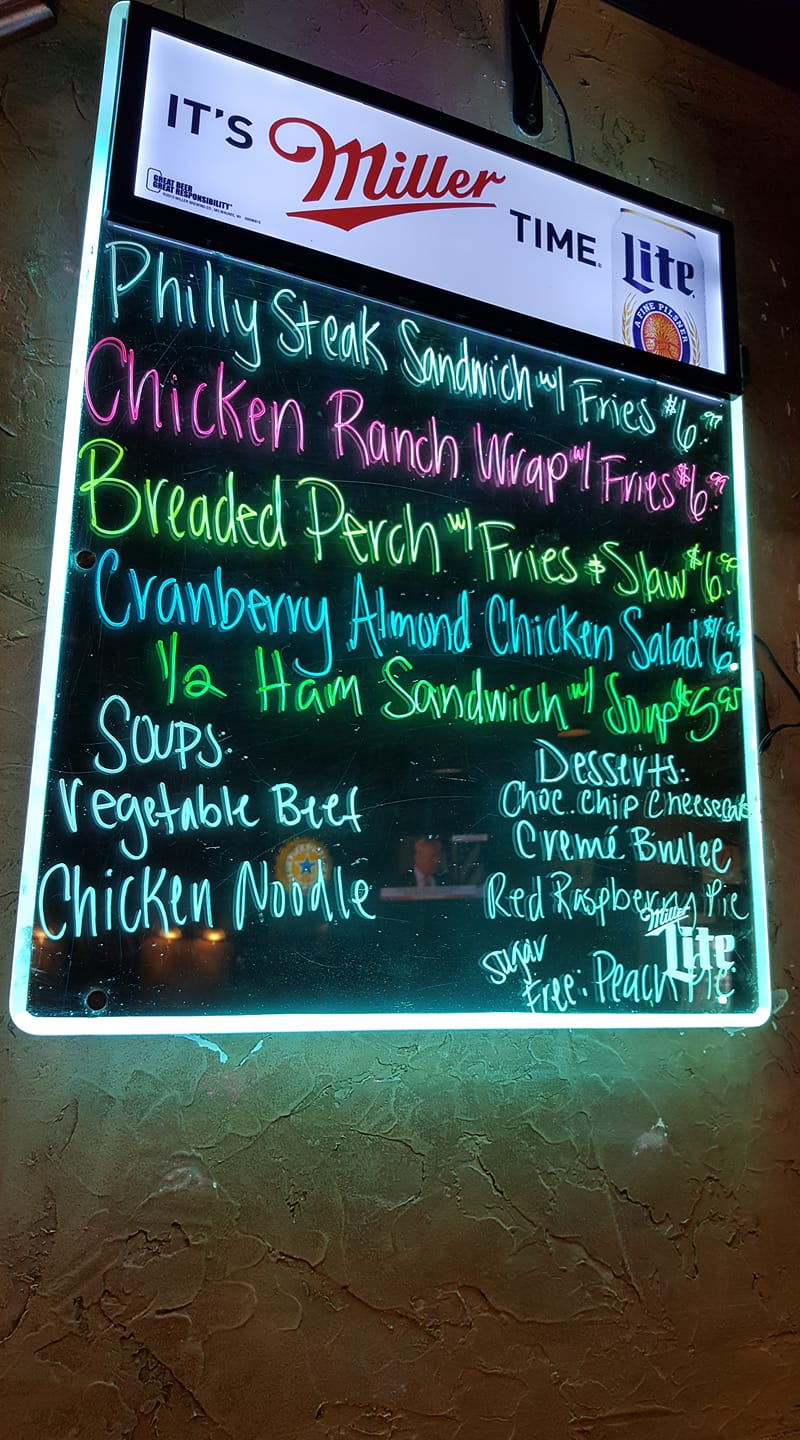 IT'S Miller TIME.
GREAT BEER
GREAT RESPONSIBILITY
Lite
A FINE PILSNER
Philly Steak Sandwich w/ Fries $6.99
Chicken Ranch Wrap w/ Fries $6.99
Breaded Perch w/ Fries & Slaw $6.99
Cranberry Almond Chicken Salad $6.99
1/2 Ham Sandwich w/ Soup $5.95
Soups:
Vegetable Beef
Chicken Noodle
Desserts:
Choc. Chip Cheesecake
Cremé Brulee
Red Raspberry Pie
Sugar
Free: Peach Pie
Miller
Lite